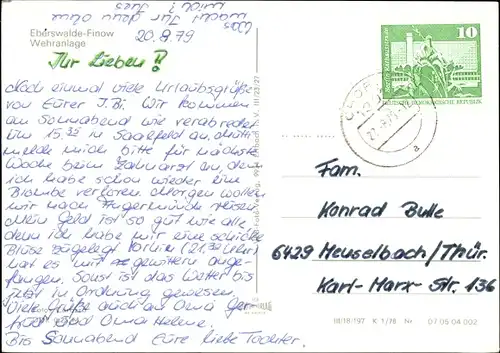 Eberswalde-Finow
Wehranlage
20.8.79
Ihr Lieben!
Noch einmal viele Urlaubsgrüße
von Eurer I.Bi. Wir kommen
am Sonnabend wie verabredet
um 15.32 in Saalfeld an. Mutti
melde mich bitte für nächste
Woche beim Zahnarzt an, denn
ich habe schon wieder eine
Blombe verloren. Morgen wollen
wir nach Angermünde reisen.
Mein Geld ist so gut wie alle,
denn ich habe mir eine schicke
Bluse zugelegt. Vorhin (21.30 Uhr)
hat es mit gewittern ange-
fangen. Sonst ist das Wetter bis
jetzt in Ordnung gewesen.
Viele Grüße auch an Oma Ger-
trud und Oma Helene.
Bis Sonnabend Eure liebe Tochter.
Das
wird
10
DEUTSCHE DEMOKRATISCHE REPUBLIK
a
Fam.
Konrad Bulle
6429 Meuselbach/Thür.
Karl-Marx-Str. 136
III/18/197 K 1/78 Nr 07 05 04 002